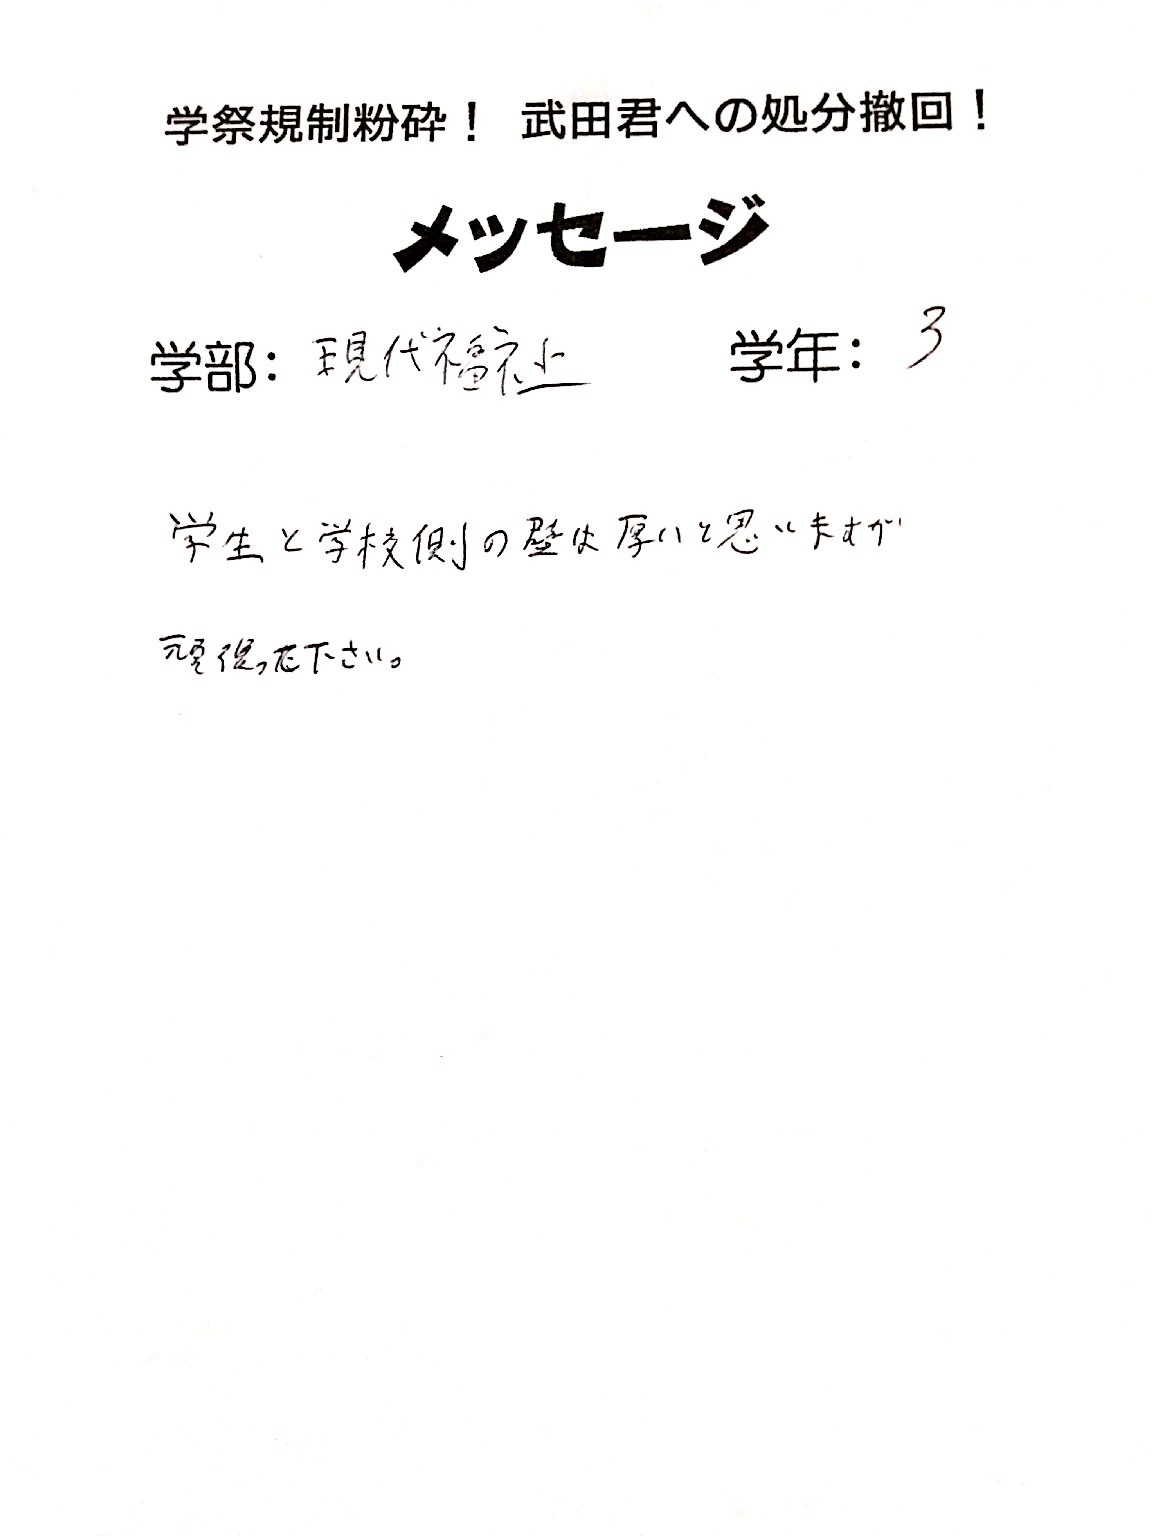 学祭規制粉砕！ 武田君への処分撤回！
メッセージ
学部：現代福祉 学年：3
学生と学校側の壁は厚いと思いますが
頑張って下さい。